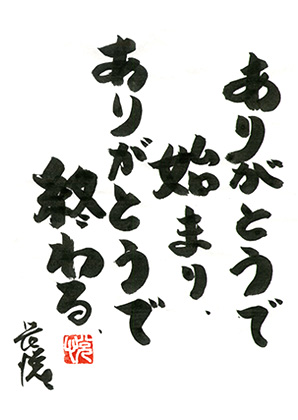 ありがとうで
始まり
ありがとうで
終わる